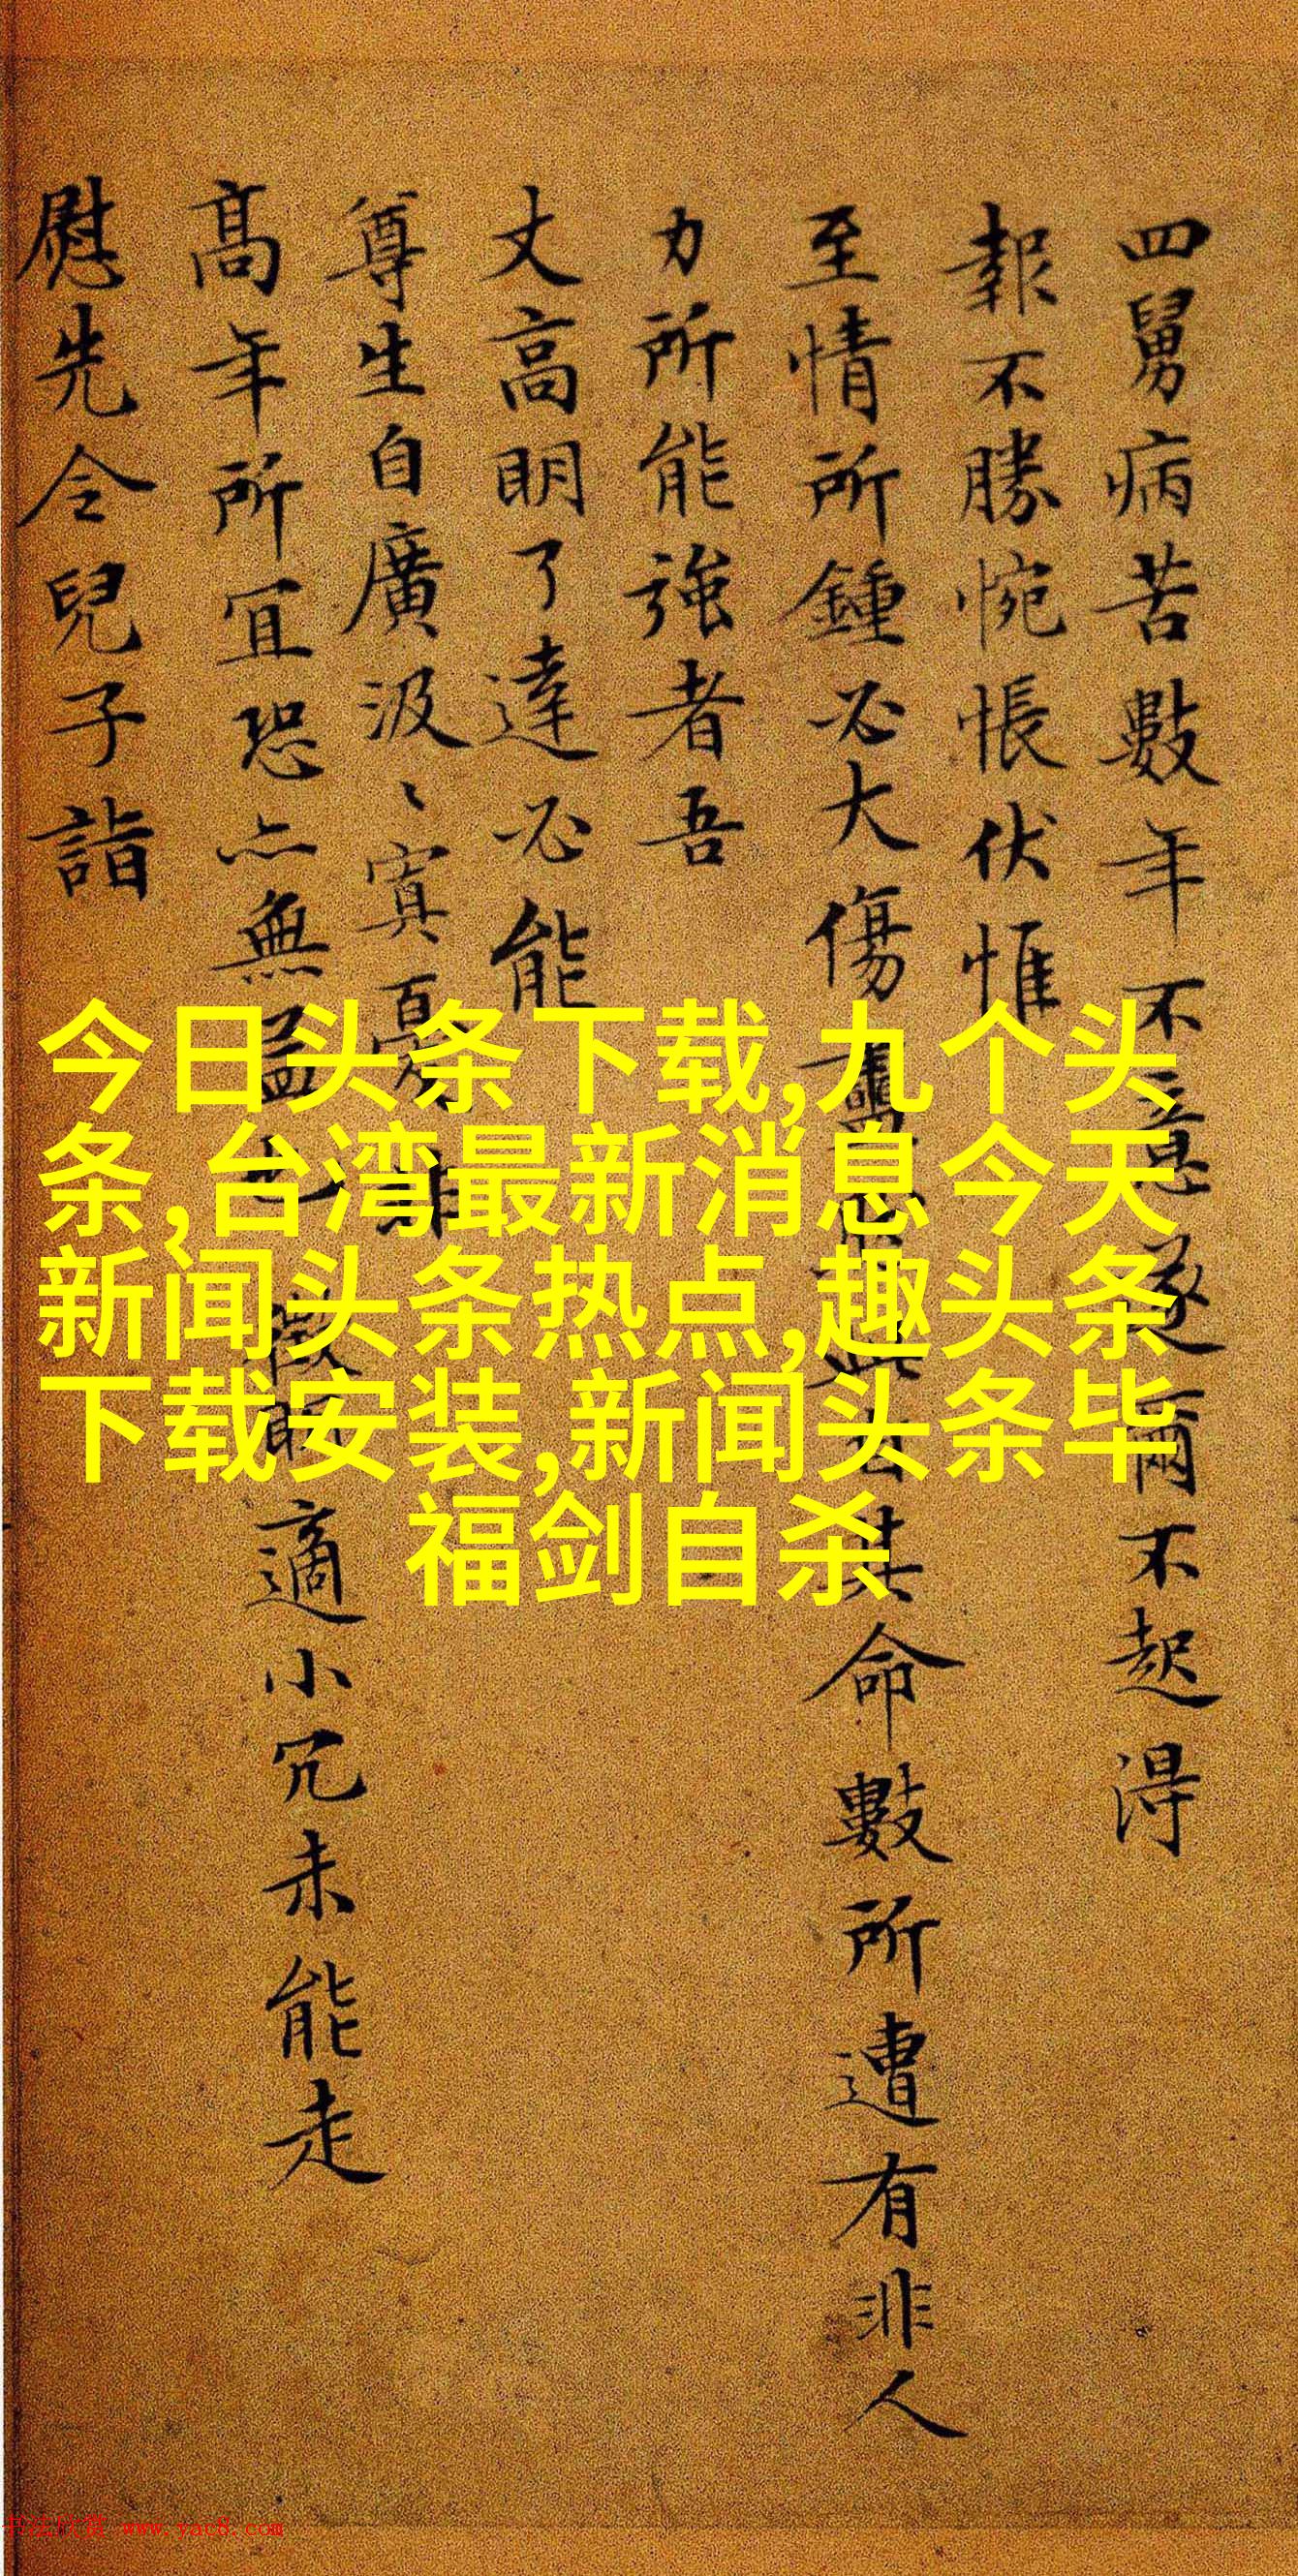 四舅病苦數年不意遂爾不起得
報不勝惋悵伏惟
至情所鍾必大傷此去其命數所遭有非人
力所能強者吾
丈高明了達必能
尊生自廣汲〻寘憂非
高年所宜恐亦無益也適小冗未能走
慰先令兒子詣
今日头条下载,九个头
条,台湾最新消息今天
新闻头条热点,趣头条
下载安装,新闻头条毕
福剑自杀
书法欣赏 www.yac8.com